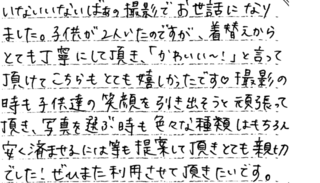 いないいないばあの撮影でお世話になり
ました。子供が2人いたのですが、着替えから
とても丁寧にして頂き、「かわいい〜!」と言って
頂けてこちらもとても嬉しかったです。撮影の
時も子供達の笑顔を引き出そうと頑張って
頂き、写真を選ぶ時も色々な種類はもちろん
安く済ませるには等も提案して頂きとても親切
でした!ぜひまた利用させて頂きたいです。